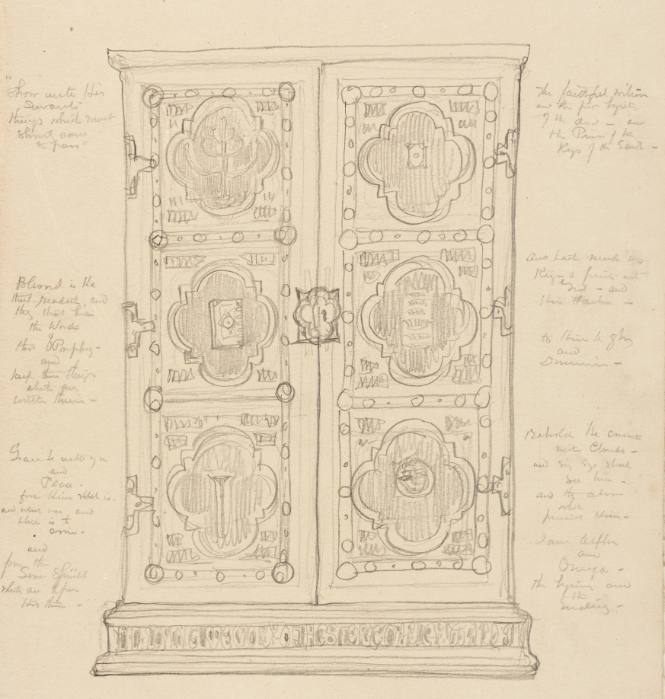 "Show unto His
Servants
things which must
come
to pass"
Blessed is he
that readeth, and
they that hear
the Words
this Prophecy -
and
keep those things
which are
written therein -
Grace be unto you
and
Peace -
from Him which is -
and which was, and
which is to
come -
and
from the
Seven Spirits
which are before
His throne -
The faithful witness
and the first
of the dead - and
the Prince of the
Kings of the Earth -
And hath made us
Kings & priests unto
God - and
His Father -
to Him be glory
and
Dominion -
Behold He cometh
with Clouds -
and every Eye shall
see him -
and they also
which
pierced Him -
I am Alpha
and
Omega -
the beginning and
the
ending -